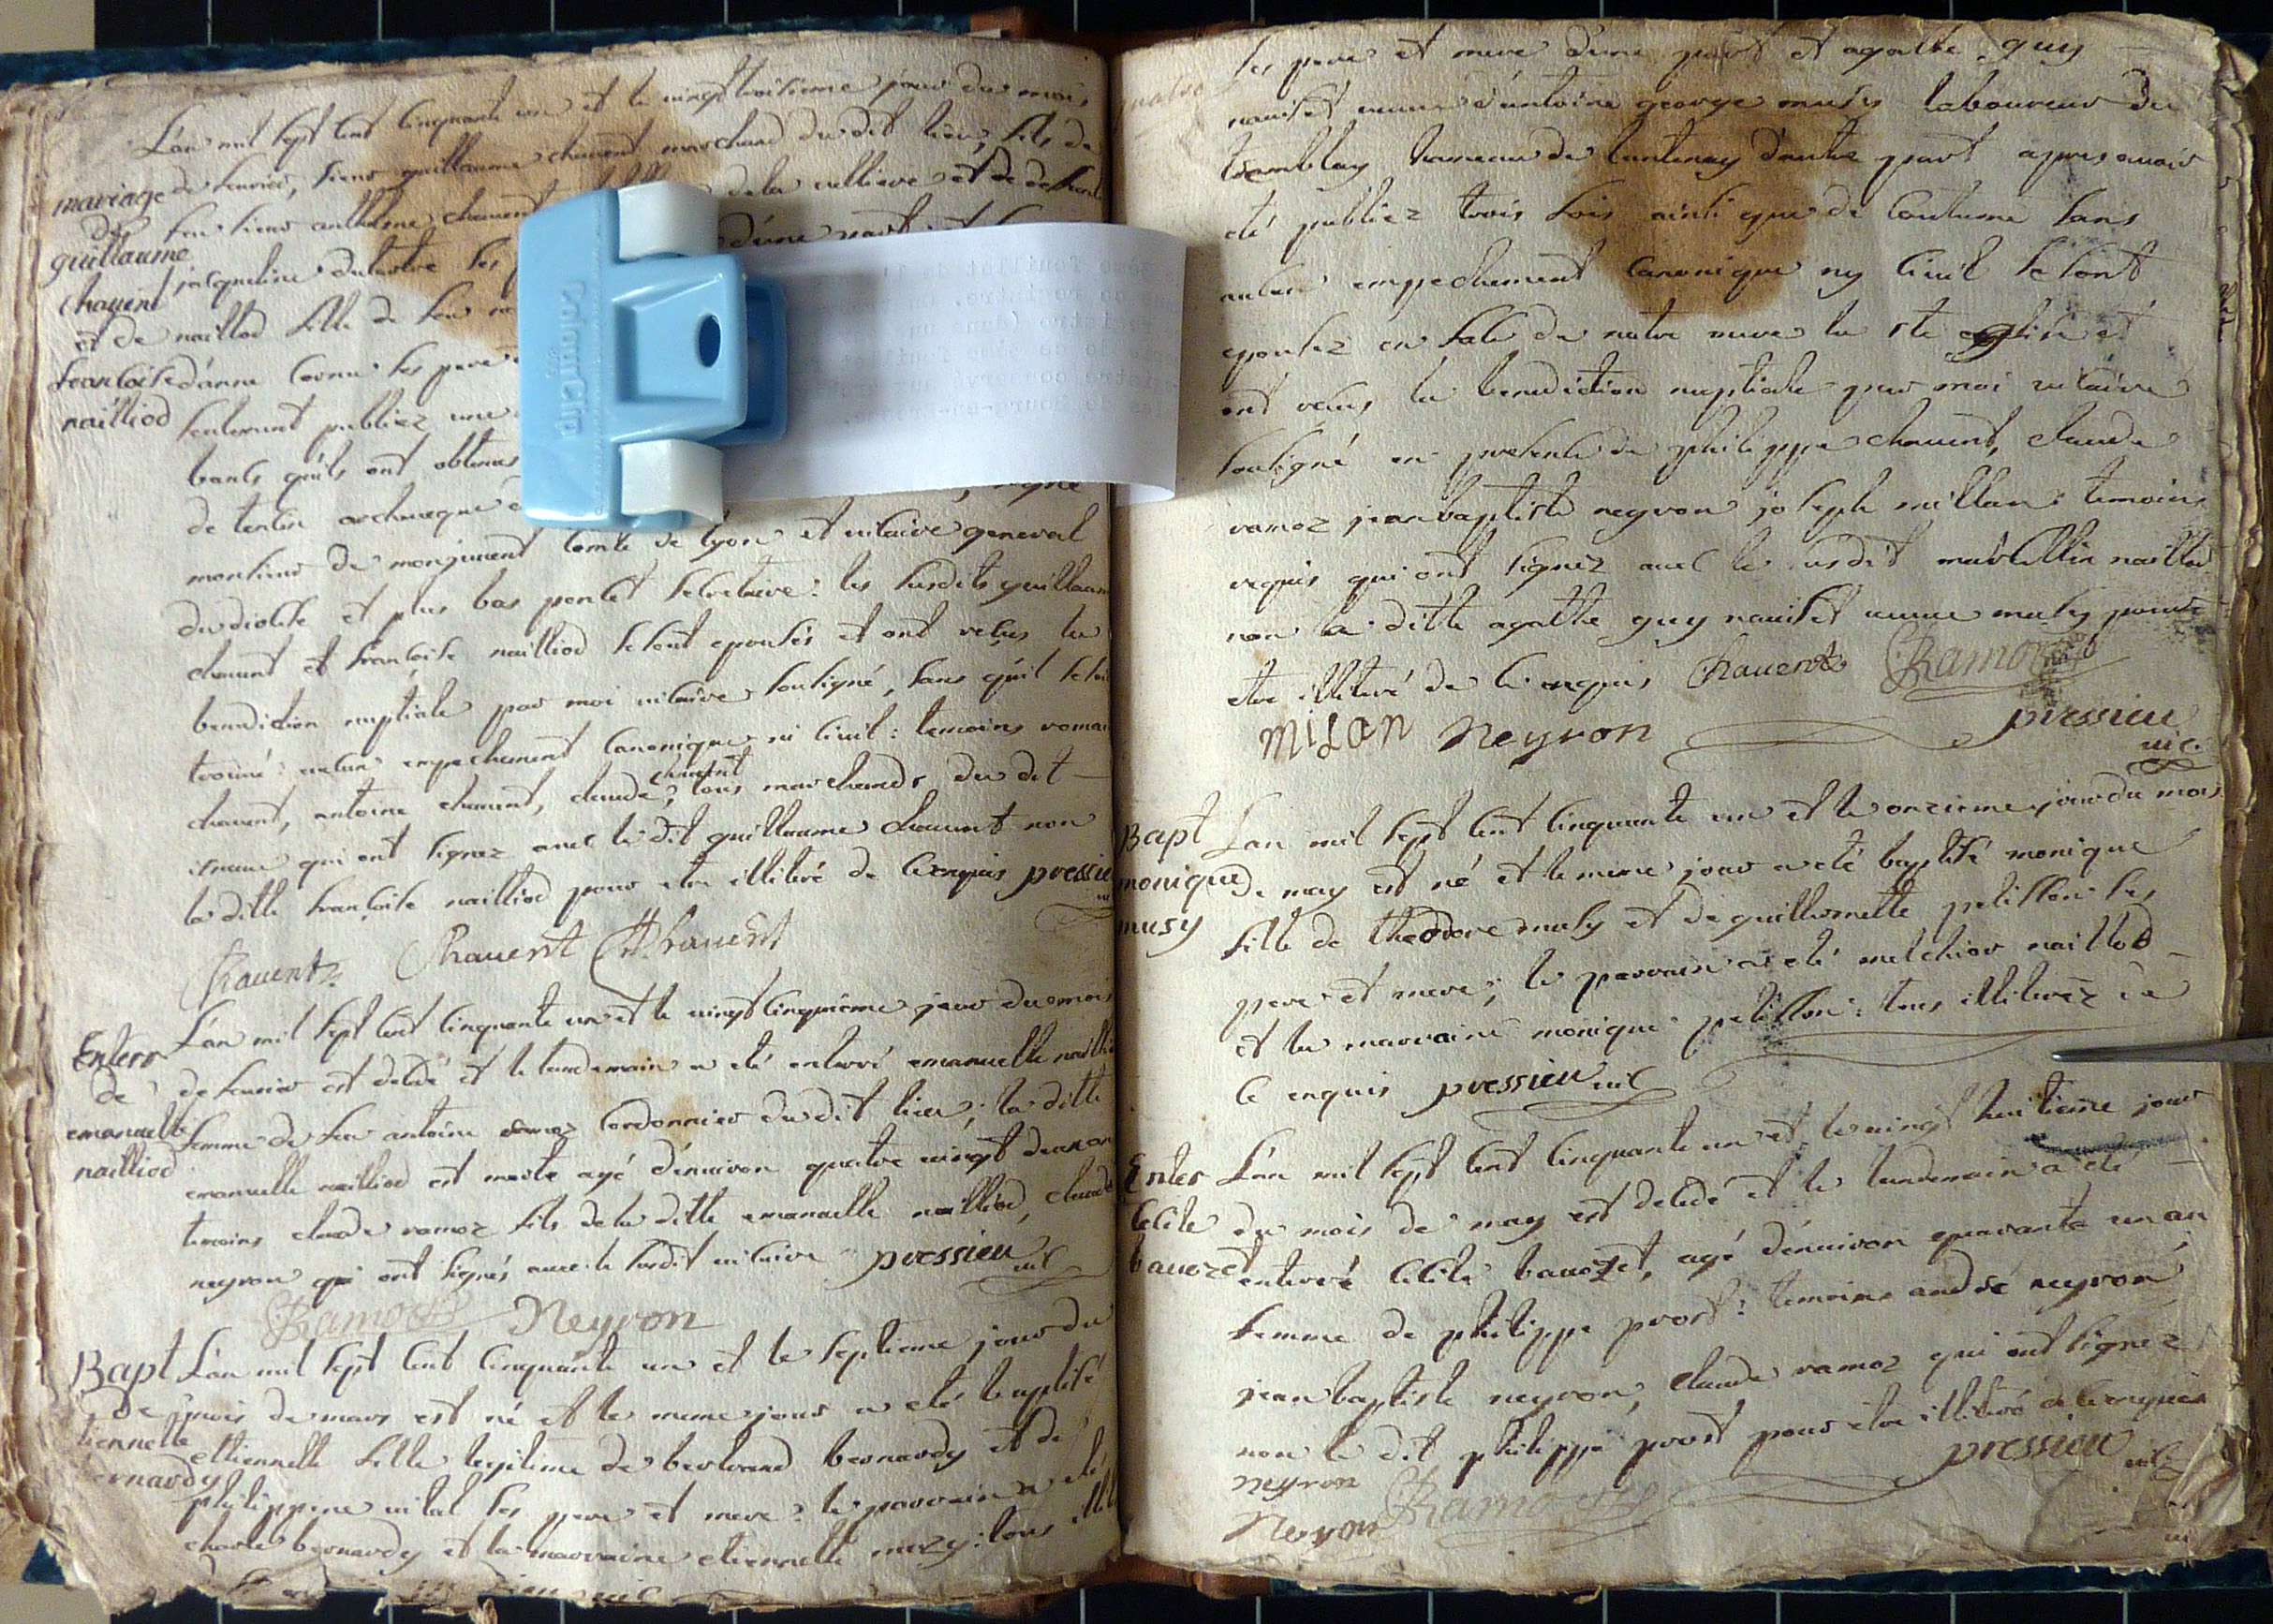 L'an mil sept cent cinquante un et le vingt troisieme jour du mois
mariage de fevrier, sieur guillaume chavent marchand du dit lieu, fils de
de feu sieur anthelme chavent de la culliere et de de
guillaume
jacqueline dutertre ses d'une part et
chavent
et de naillod fille de feu
francoise d'anne cornu ses pere
nailliod seulement publiez une
bancs qu'ils ont obtenus
de tencin archeveque signé
monsieur de monjouvent comte de lyon et vicaire general
du diocese et plus bas poncet secretaire: les susdits guillaume
chavent et francoise nailliod se sont epousés et ont reçus la
benediction nuptiale par moi vicaire soussigné, sans qu'il se soit
trouvé aucun empechement canonique ni civil: temoins romain
chavent, antoine chavent, claude chavent, tous marchands du dit
qui ont signez avec le dit guillaume chavent non
la ditte francoise nailliod pour etre illiteré de ce enquis pressieu
Chavent Chavent Chavent
Enterr L'an mil sept cent cinquante un et le vingt cinquieme jour du mois
de de fevrier est decedé et le lendemain a eté enterré emanuelle nailliod
emanuelle femme de feu antoine ramoz cordonnier du dit lieu; la ditte
nailliod emanuelle nailliod est morte agé d'environ quatre vingt deux an
temoins claude ramoz fils de la ditte emanuelle nailliod, claude
neyron qui ont signés avec le susdit vicaire pressieu vic
Ramoz Neyron
Bapt L'an mil sept cent cinquante un et le septieme jour du
de mois de mars est né et le meme jour a eté baptisé
tiennette ettiennette fille legitime de bertrand bernardy et de
bernardy philippine vital ses pere et mere: le parrain a eté
charle bernardy et la marraine etiennette muzy: tous
ses pere et mere d'une part et agathe guy
naviset veuve d'antoine george musy laboureur du
tremblay hameau de lantenay d'autre part apres avoir
eté publiez trois fois ainsi que de coutume sans
aucun empechement canonique ny civil se sont
epousez en face de notre mere la ste eglise et
ont reçus la benediction nuptiale par moi vicaire
sousigné en presence de philippe chavent, claude
ramoz jean baptiste neyron joseph millan: temoins
requis qui ont signez avec le susdit marcellin naillod
non la ditte agathe guy naviset veuve musy pour
etre illiteré de ce enquis Chavent Ramoz
MiLan Neyron pressieu
vic
Bapt L'an mil sept cent cinquante un et le onzieme jour du mois
monique de may est né et le meme jour a eté baptisé monique
musy fille de theodore musy et de guillemette pelisson ses
pere et mere; le parrain a eté melchior naillod
et la marraine monique pelisson: tous illiterez de
ce enquis pressieu vic
Enter L'an mil sept cent cinquante un et le vingt huitieme jour
cecile du mois de may est decedé et le lendemain a eté
bavozet enterré cecile bavozet, agé d'environ quarante un an
femme de philippe prost: temoins andré neyron
jean baptiste neyron, claude ramoz qui ont signez
non le dit philippe prost pour etre illiteré de ce enquis
neyron pressieu vic
Neyron Ramoz